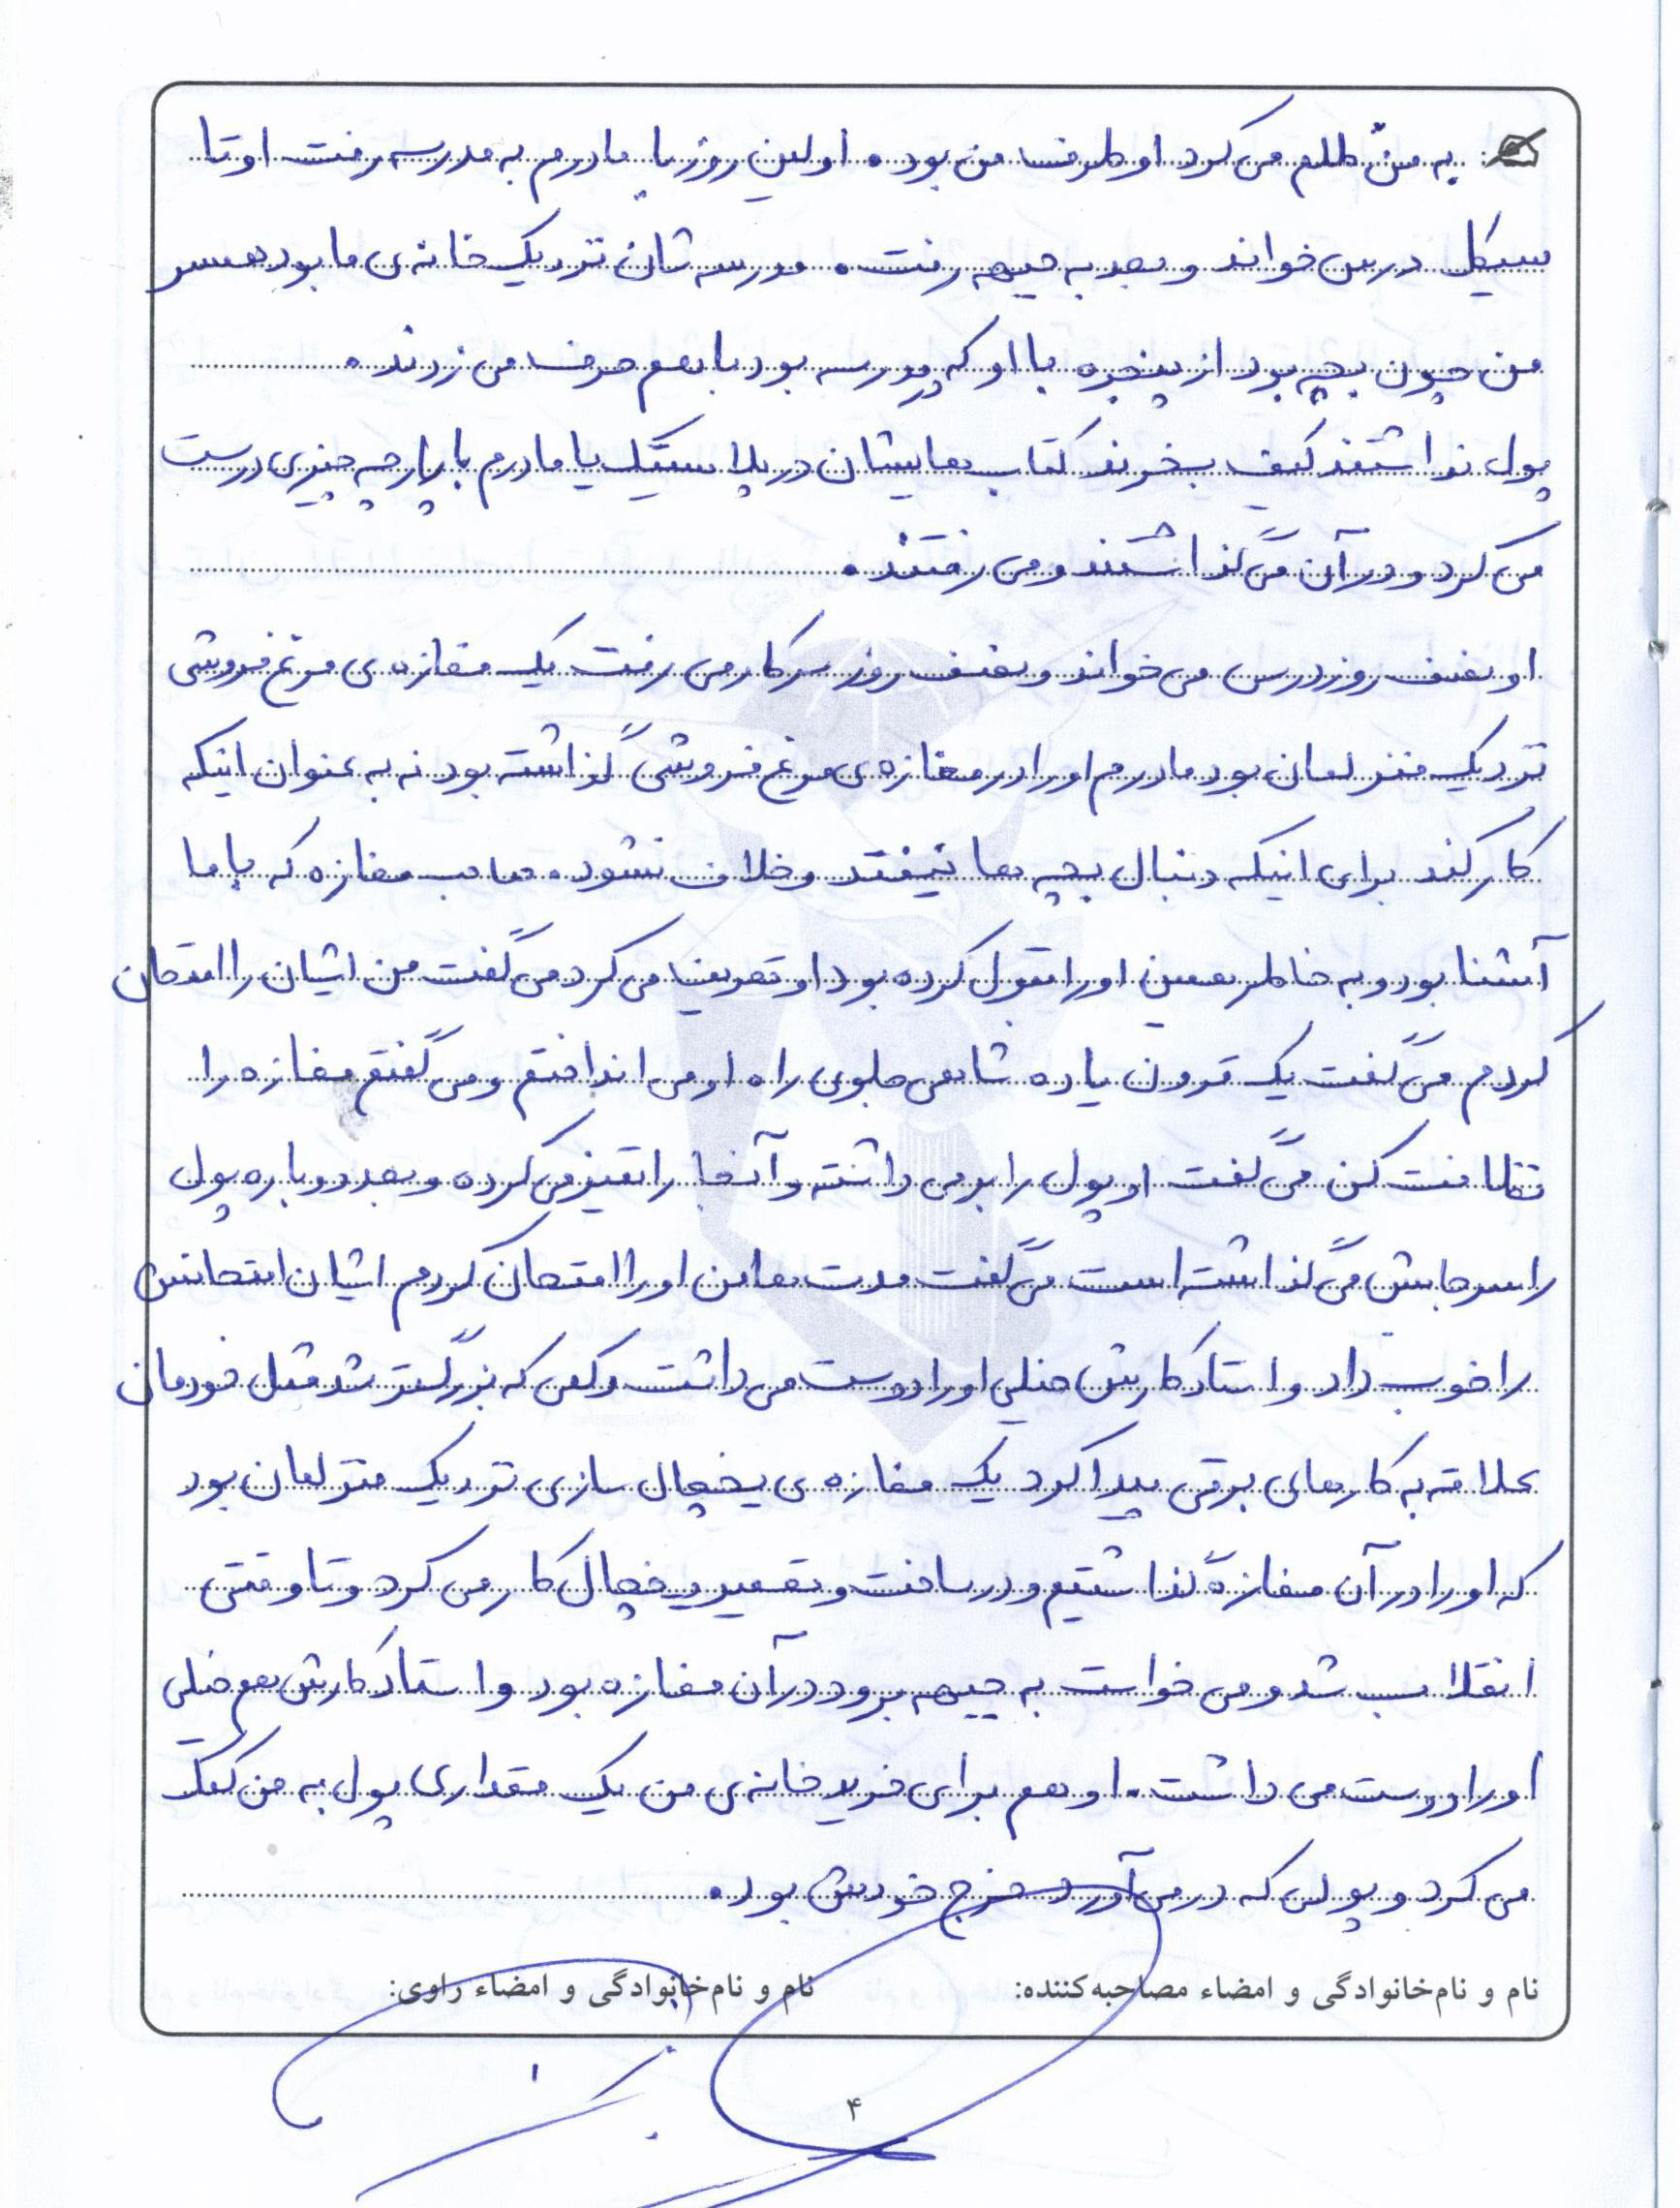 به من ظلم می کرد او طرف من بود. اولین روز با مادرم به مدرسه رفت او تا
سیکل درس خواند و بعد به جبهه رفت. مدرسه شان نزدیک خانه ی ما بود همسر
من چون بچه بود از پنجره با او که مدرسه بود با هم حرف می زدند.
پول نداشتند کیف بخرند کتاب هایشان در پلاستیک یا مادرم با پارچه چیزی درست
می کرد و در آن می گذاشتند و می رفتند.
او نصف روز درس می خواند و نصف روز سرکار می رفت یک مغازه ی مرغ فروشی
نزدیک منزلمان بود مادرم او را در مغازه ی مرغ فروشی گذاشته بود نه به عنوان اینکه
کار کند برای اینکه دنبال بچه ها نیفتد و خلاف نشود. صاحب مغازه که با ما
آشنا بود و به خاطر همین او را قبول کرده بود او تعریف می کرد می گفت من ایشان را امتحان
کردم می گفت یک قرون یا ده شاهی جلوی راه او می انداختم و می گفتم مغازه را
نظافت کن می گفت او پول را برمی داشته و آنجا را تمیز می کرده و بعد دوباره پول
را سر جایش می گذاشته است می گفت مدت ها من او را امتحان کردم ایشان امتحانش
را خوب داد و استاد کارش خیلی او را دوست می داشت و کمی که بزرگتر شد مثل خودمان
علاقه به کارهای برقی پیدا کرد یک مغازه ی یخچال سازی نزدیک منزلمان بود
که او را در آن مغازه گذاشتیم و در ساخت و تعمیر یخچال کار می کرد و تا وقتی
انقلاب شد و می خواست به جبهه برود در آن مغازه بود و استاد کارش هم خیلی
او را دوست می داشت. او هم برای خرید خانه ی من یک مقداری پول به من کمک
می کرد و پولی که در می آورد خرج خودش بود.
نام و نام‌خانوادگی و امضاء مصاحبه‌کننده: نام و نام‌خانوادگی و امضاء راوی:
۴